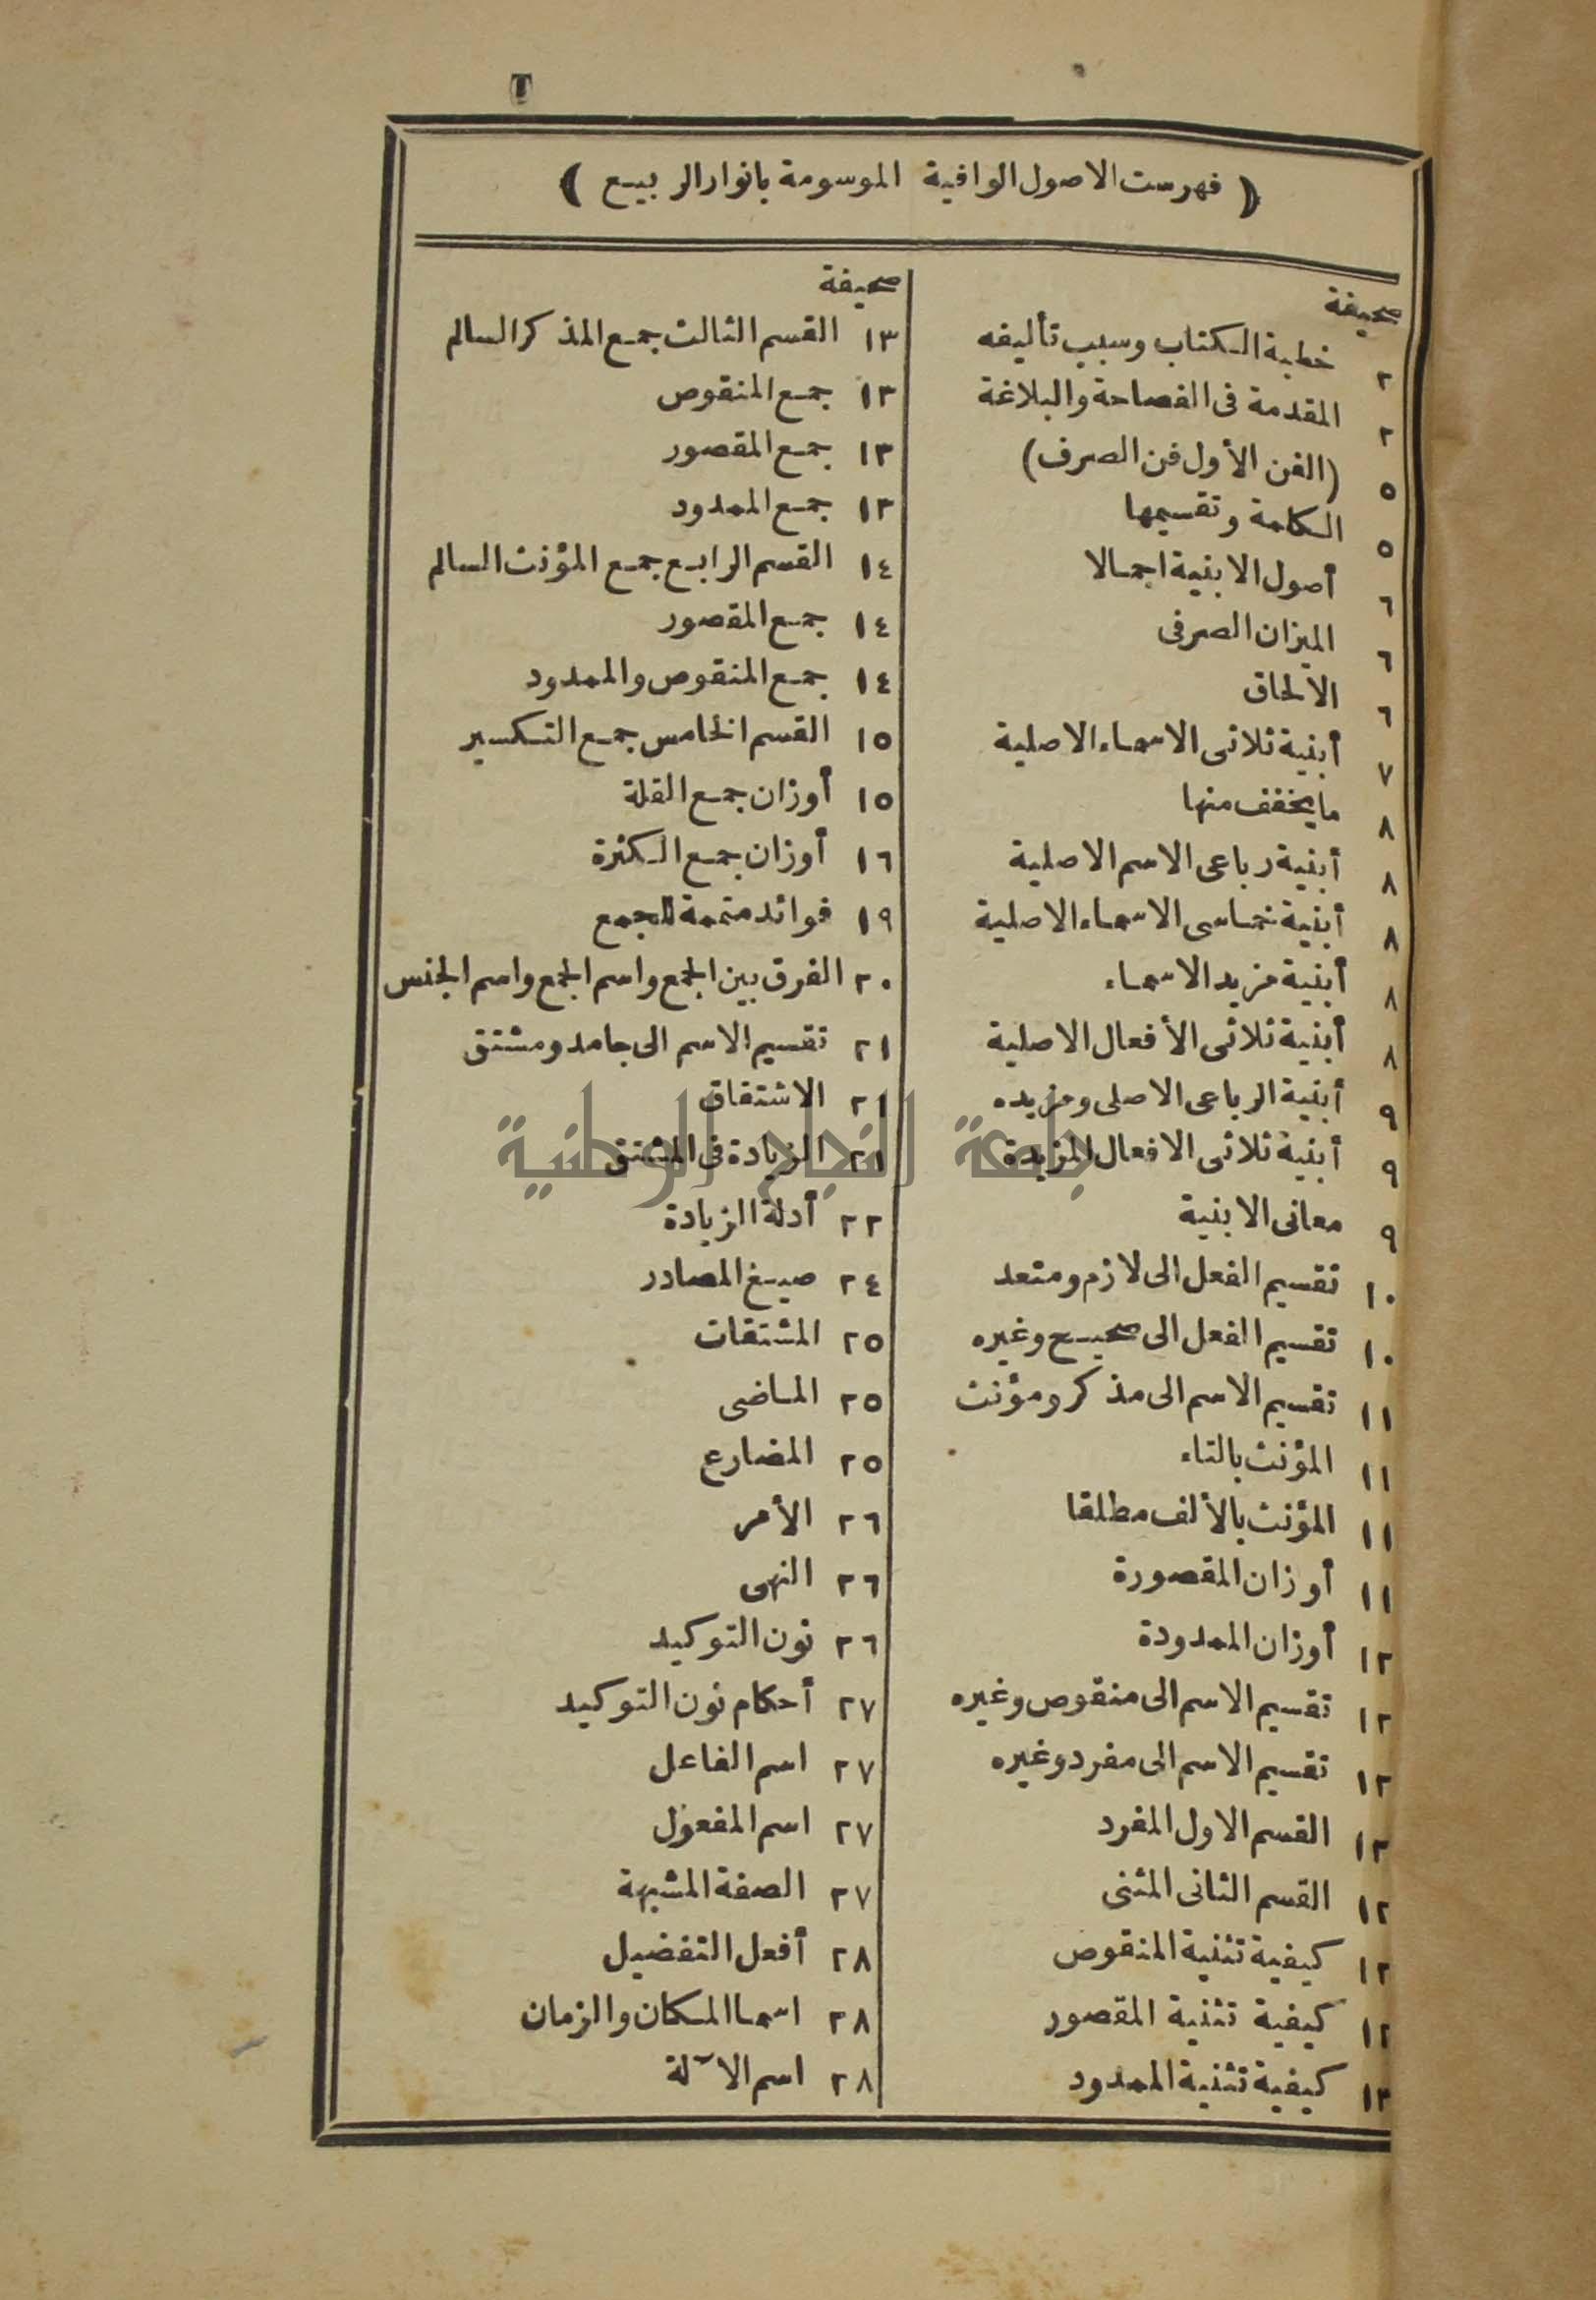 ٢
( فهرست الاصول الوافية الموسومة بانوار الربيع )
صحيفة
٢ خطبة الكتاب وسبب تأليفه
٢ المقدمة فى الفصاحة والبلاغة
٥ (الفن الأول فن الصرف)
٥ الكلمة وتقسيمها
٦ أصول الابنية اجمالا
٦ الميزان الصرفى
٦ الالحاق
٧ أبنية ثلاثى الاسماء الاصلية
٨ ما يخفف منها
٨ أبنية رباعى الاسم الاصلية
٨ أبنية خماسى الاسماء الاصلية
٨ أبنية مزيد الاسماء
٨ أبنية ثلاثى الأفعال الاصلية
٩ أبنية الرباعى الاصلى ومزيده
٩ أبنية ثلاثى الافعال المزيدة
٩ معانى الابنية
١٠ تقسيم الفعل الى لازم ومتعد
١٠ تقسيم الفعل الى صحيح وغيره
١١ تقسيم الاسم الى مذكر ومؤنث
١١ المؤنث بالتاء
١١ المؤنث بالألف مطلقا
١١ أوزان المقصورة
١٢ أوزان الممدودة
١٢ تقسيم الاسم الى منقوص وغيره
١٢ تقسيم الاسم الى مفرد وغيره
١٢ القسم الاول المفرد
١٢ القسم الثانى المثنى
١٢ كيفية تثنية المنقوص
١٢ كيفية تثنية المقصور
١٣ كيفية تثنية الممدود
صحيفة
١٣ القسم الثالث جمع المذكر السالم
١٣ جمع المنقوص
١٣ جمع المقصور
١٣ جمع الممدود
١٤ القسم الرابع جمع المؤنث السالم
١٤ جمع المقصور
١٤ جمع المنقوص والممدود
١٥ القسم الخامس جمع التكسير
١٥ أوزان جمع القلة
١٦ أوزان جمع الكثرة
١٩ فوائد متممة للجمع
٢٠ الفرق بين الجمع واسم الجمع واسم الجنس
٢١ تقسيم الاسم الى جامد ومشتق
٢١ الاشتقاق
٢١ الزيادة فى المشتق
٢٢ أدلة الزيادة
٢٤ صيغ المصادر
٢٥ المشتقات
٢٥ الماضى
٢٥ المضارع
٢٦ الأمر
٢٦ النهى
٢٦ نون التوكيد
٢٧ أحكام نون التوكيد
٢٧ اسم الفاعل
٢٧ اسم المفعول
٢٧ الصفة المشبهة
٢٨ أفعل التفضيل
٢٨ اسما المكان والزمان
٢٨ اسم الآلة
جامعة النجاح الوطنية